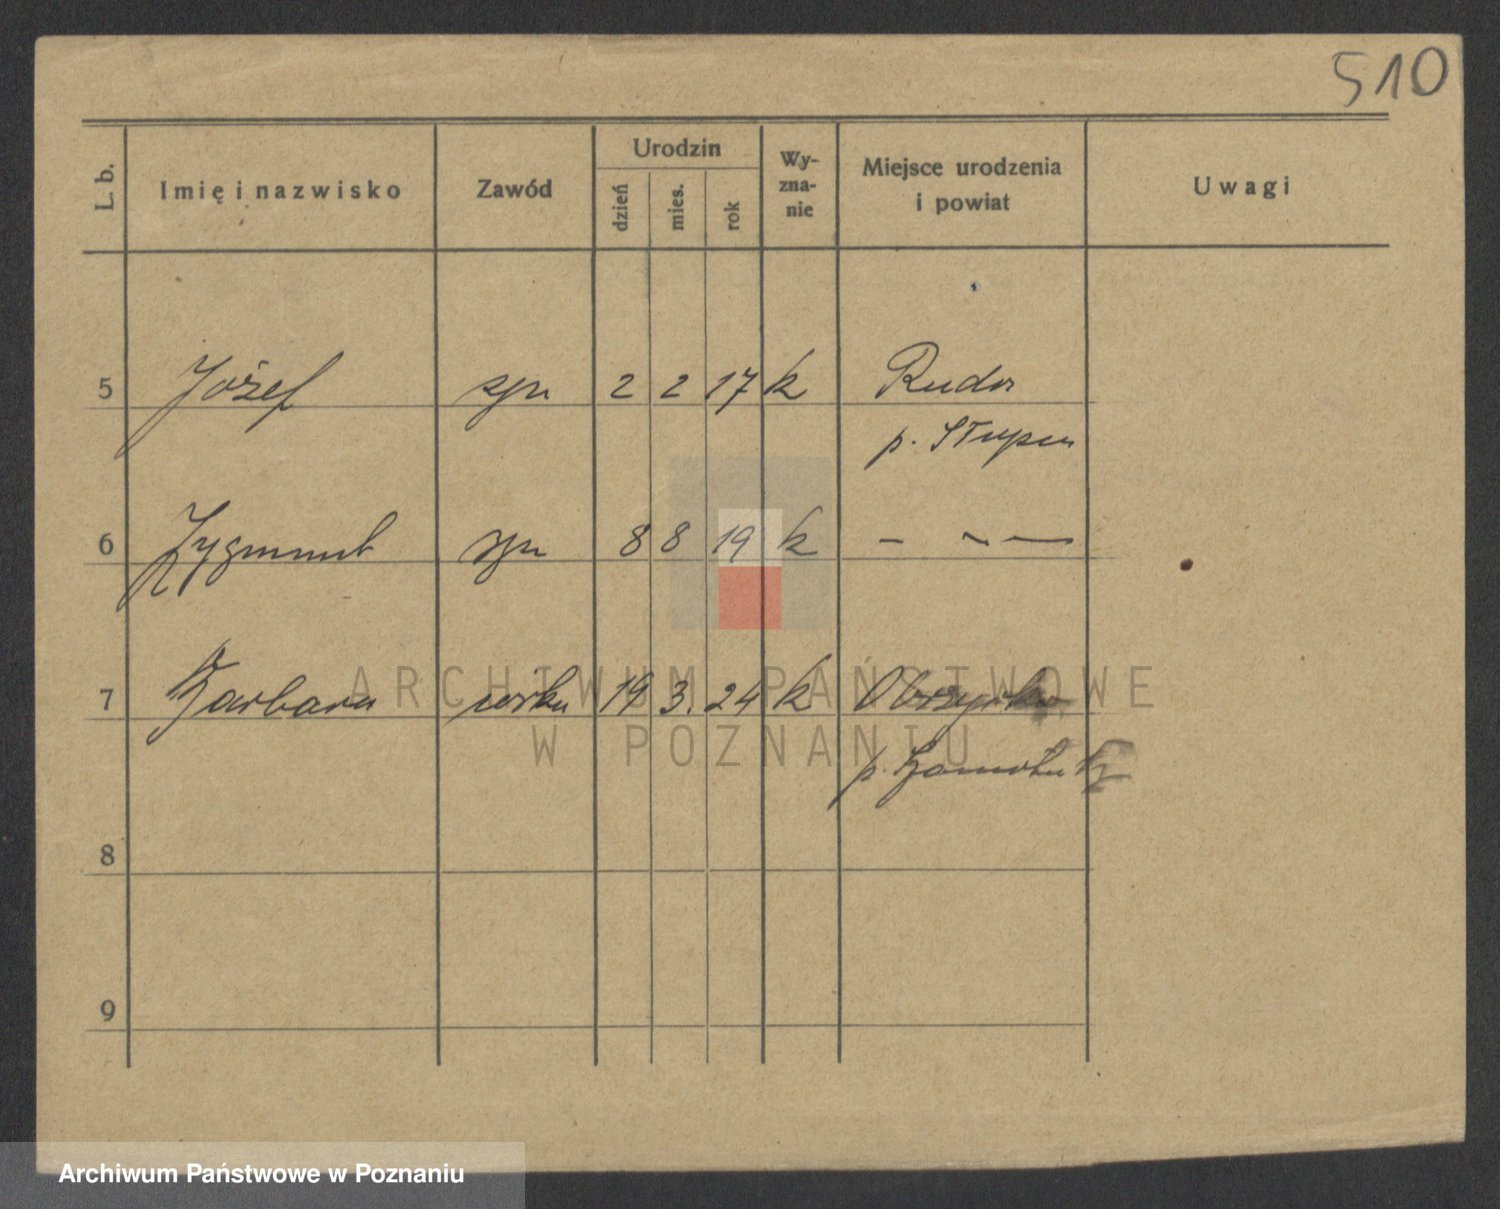 510
L. b. Imię i nazwisko Zawód Urodzin dzień mies. rok Wy-zna-nie Miejsce urodzenia i powiat Uwagi
5 Józef syn 2 2 17 k Ruda
p. Słupca
6 Zygmunt syn 8 8 19 k — 〃 —
7 Barbara córka 19 3. 24 k Obrzycko
p. Szamotuły
8
9
ARCHIWUM PAŃSTWOWE
W POZNANIU
Archiwum Państwowe w Poznaniu